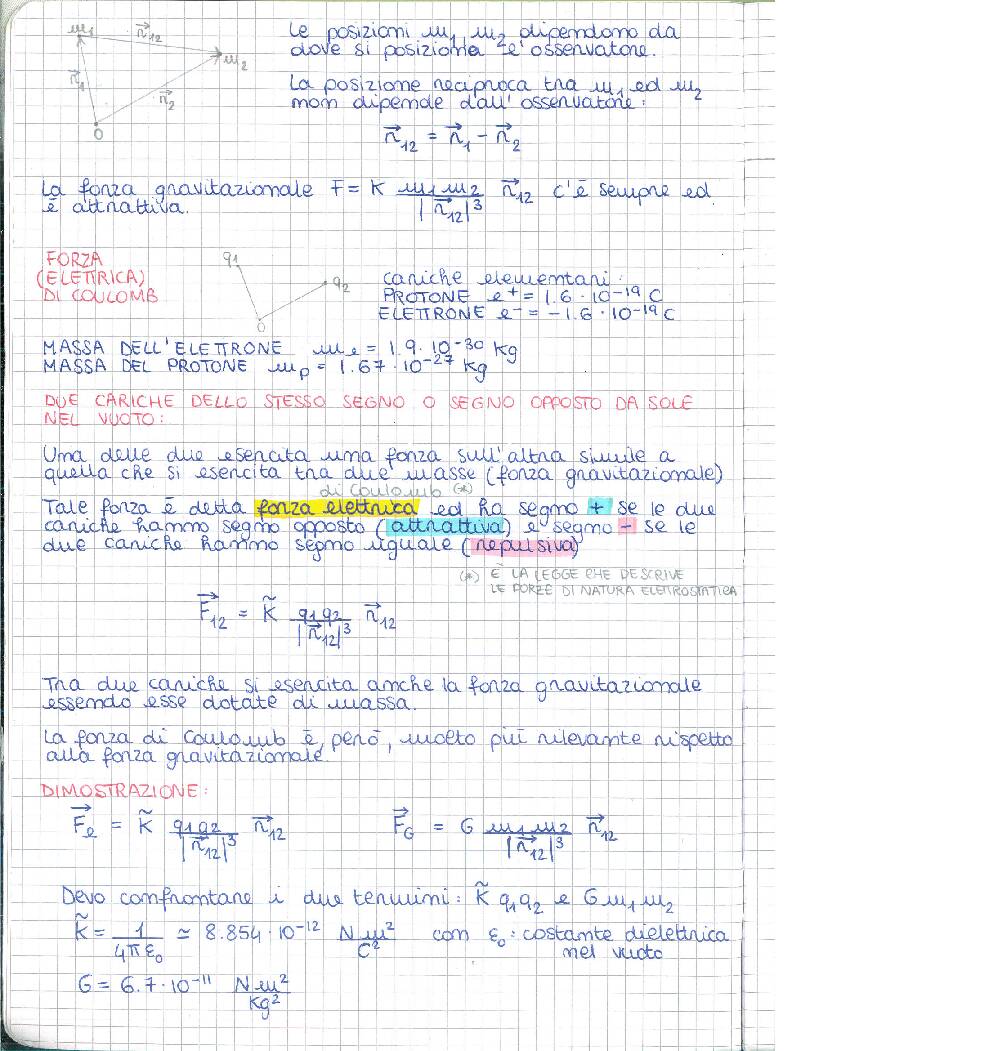 m₁
r⃗₁₂
m₂
r⃗₁
r⃗₂
O
Le posizioni m₁, m₂ dipendono da
dove si posiziona l'osservatore.
La posizione reciproca tra m₁ ed m₂
non dipende dall'osservatore:
r⃗₁₂ = r⃗₁ - r⃗₂
La forza gravitazionale F = K m₁m₂ / |r⃗₁₂|³ r⃗₁₂ c'è sempre ed
è attrattiva.
FORZA
(ELETTRICA)
DI COULOMB
q₁
q₂
O
cariche elementari:
PROTONE e⁺ = 1.6 · 10⁻¹⁹ C
ELETTRONE e⁻ = -1.6 · 10⁻¹⁹ C
MASSA DELL'ELETTRONE mₑ = 1.9 · 10⁻³⁰ kg
MASSA DEL PROTONE mₚ = 1.67 · 10⁻²⁷ kg
DUE CARICHE DELLO STESSO SEGNO O SEGNO OPPOSTO DA SOLE
NEL VUOTO:
Una delle due esercita una forza sull'altra simile a
quella che si esercita tra due masse (forza gravitazionale)
di Coulomb (*)
Tale forza è detta forza elettrica ed ha segno + se le due
cariche hanno segno opposto (attrattiva) e segno - se le
due cariche hanno segno uguale (repulsiva)
(*) È LA LEGGE CHE DESCRIVE
LE FORZE DI NATURA ELETTROSTATICA
F⃗₁₂ = K̃ q₁q₂ / |r⃗₁₂|³ r⃗₁₂
Tra due cariche si esercita anche la forza gravitazionale
essendo esse dotate di massa.
La forza di Coulomb è, però, molto più rilevante rispetto
alla forza gravitazionale.
DIMOSTRAZIONE:
F⃗ₑ = K̃ q₁q₂ / |r⃗₁₂|³ r⃗₁₂ F⃗_G = G m₁m₂ / |r⃗₁₂|³ r⃗₁₂
Devo confrontare i due termini: K̃ q₁q₂ e G m₁m₂
K̃ = 1 / 4πε₀ ≃ 8.854 · 10⁻¹² Nm² / C² con ε₀: costante dielettrica
nel vuoto
G = 6.7 · 10⁻¹¹ Nm² / kg²